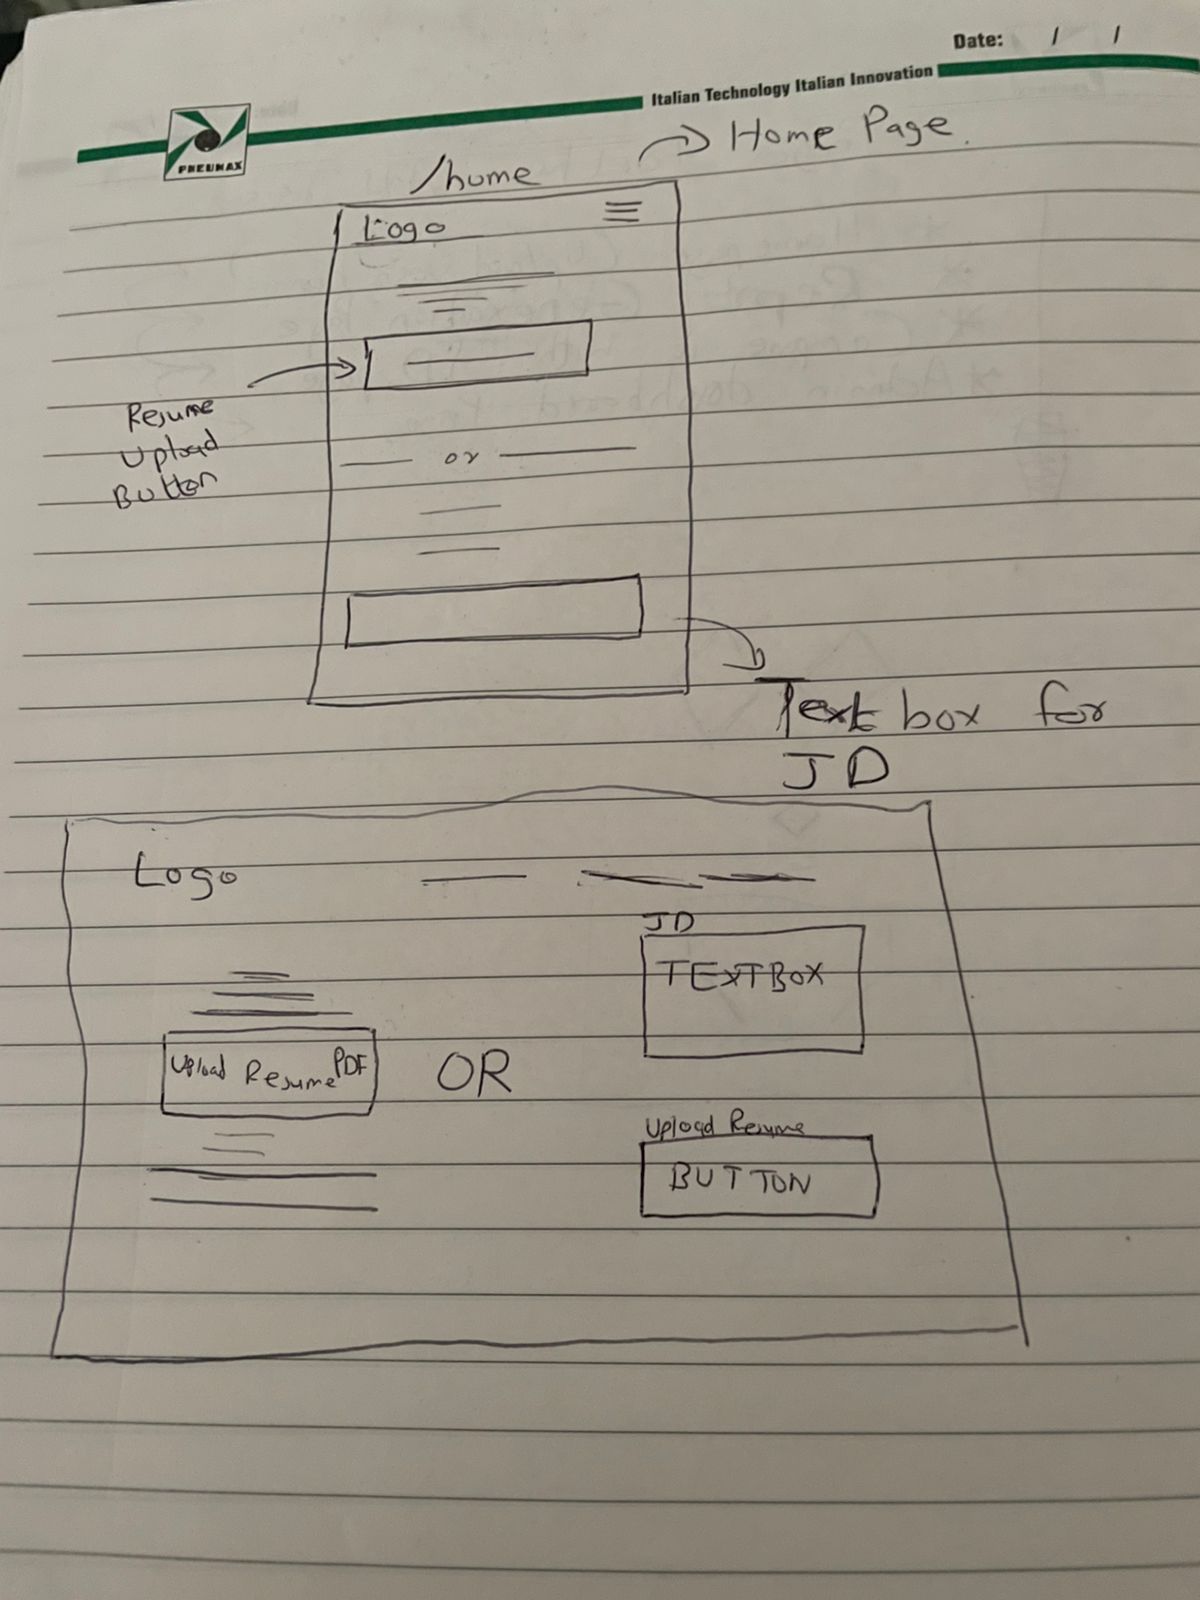 Date: / /
Italian Technology Italian Innovation
PNEUMAX
Home Page.
/home
Logo
Resume
Upload
Button
or
Text box for
JD
Logo
JD
TEXTBOX
Upload Resume PDF
OR
Upload Resume
BUTTON